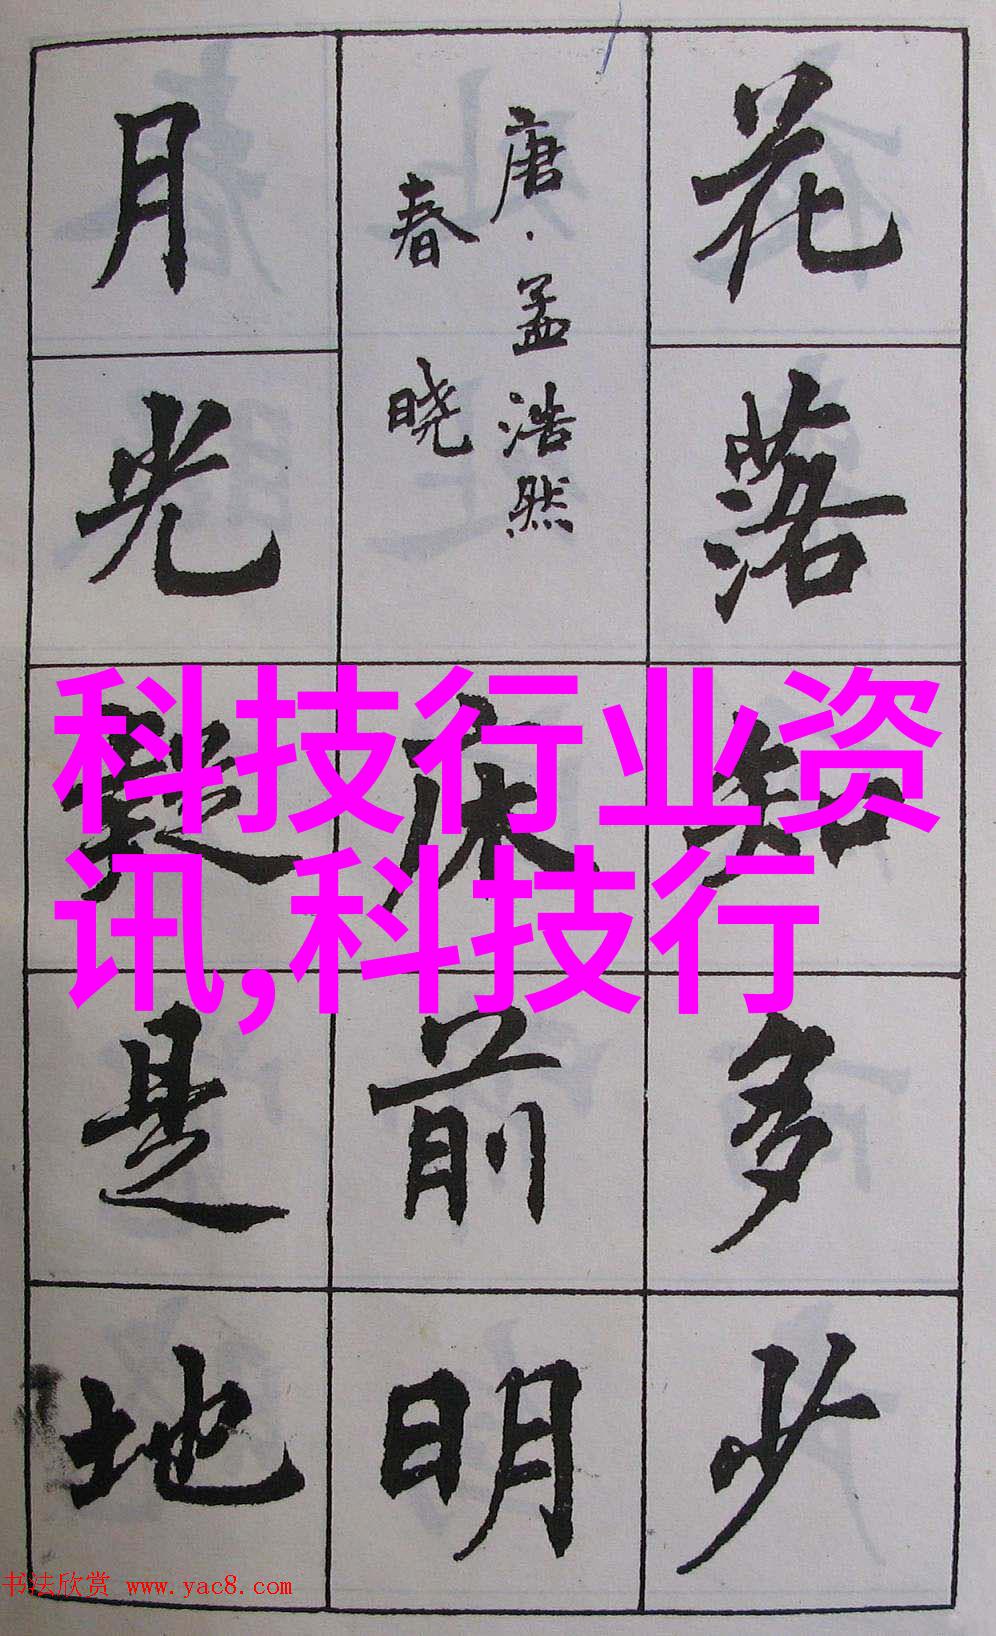 花落知多少
唐·孟浩然
春晓
床前明
月光疑是地
科技行业资
讯,科技行
书法欣赏 www.yac8.com